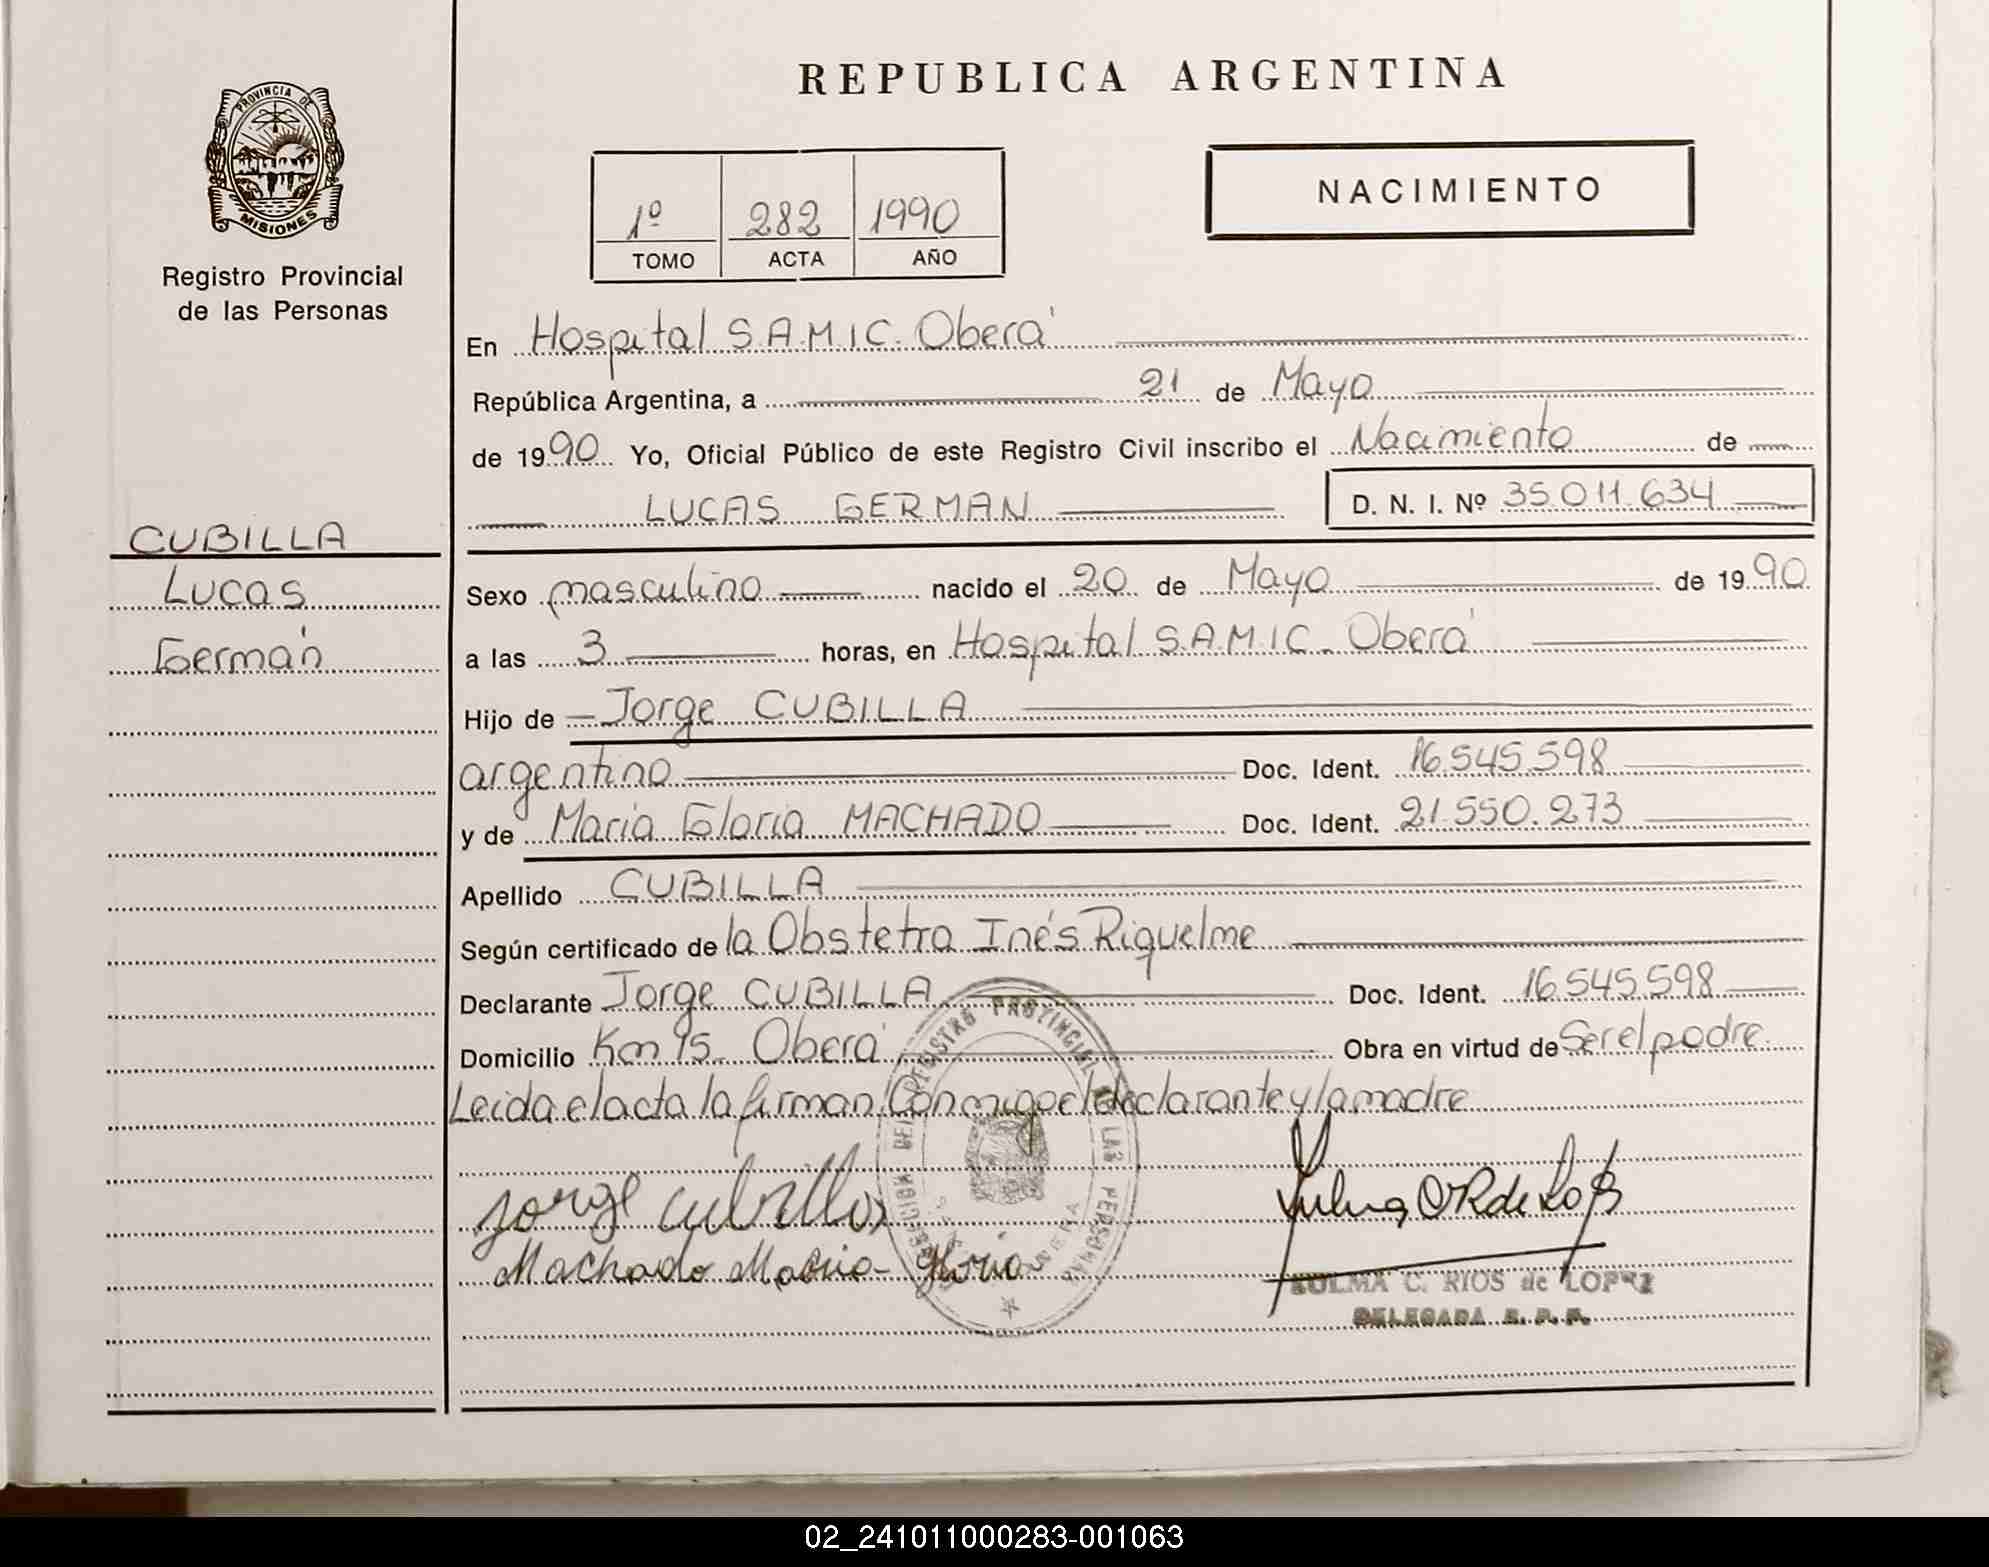 REPUBLICA ARGENTINA
PROVINCIA DE
MISIONES
Registro Provincial
de las Personas
1º 282 1990
TOMO ACTA AÑO
NACIMIENTO
En Hospital S.A.M.I.C. Oberá
República Argentina, a 21 de Mayo
de 1990 Yo, Oficial Público de este Registro Civil inscribo el Nacimiento de
LUCAS GERMAN D. N. I. Nº 35.011.634
CUBILLA
Lucas
Germán
Sexo masculino nacido el 20 de Mayo de 1990
a las 3 horas, en Hospital S.A.M.I.C. Oberá
Hijo de Jorge CUBILLA
argentino Doc. Ident. 16.545.598
y de Maria Gloria MACHADO Doc. Ident. 21.550.273
Apellido CUBILLA
Según certificado de la Obstetra Inés Riquelme
Declarante Jorge CUBILLA Doc. Ident. 16.545.598
Domicilio Km 15 Oberá Obra en virtud de Ser el padre.
Leida el acta la firman Conmigo el declarante y la madre
REGISTRO PROVINCIAL DE LAS PERSONAS
Jorge Cubilla
Machado Maria Gloria
ZULMA C. RIOS de LOPEZ
DELEGADA R. P. P.
02_241011000283-001063